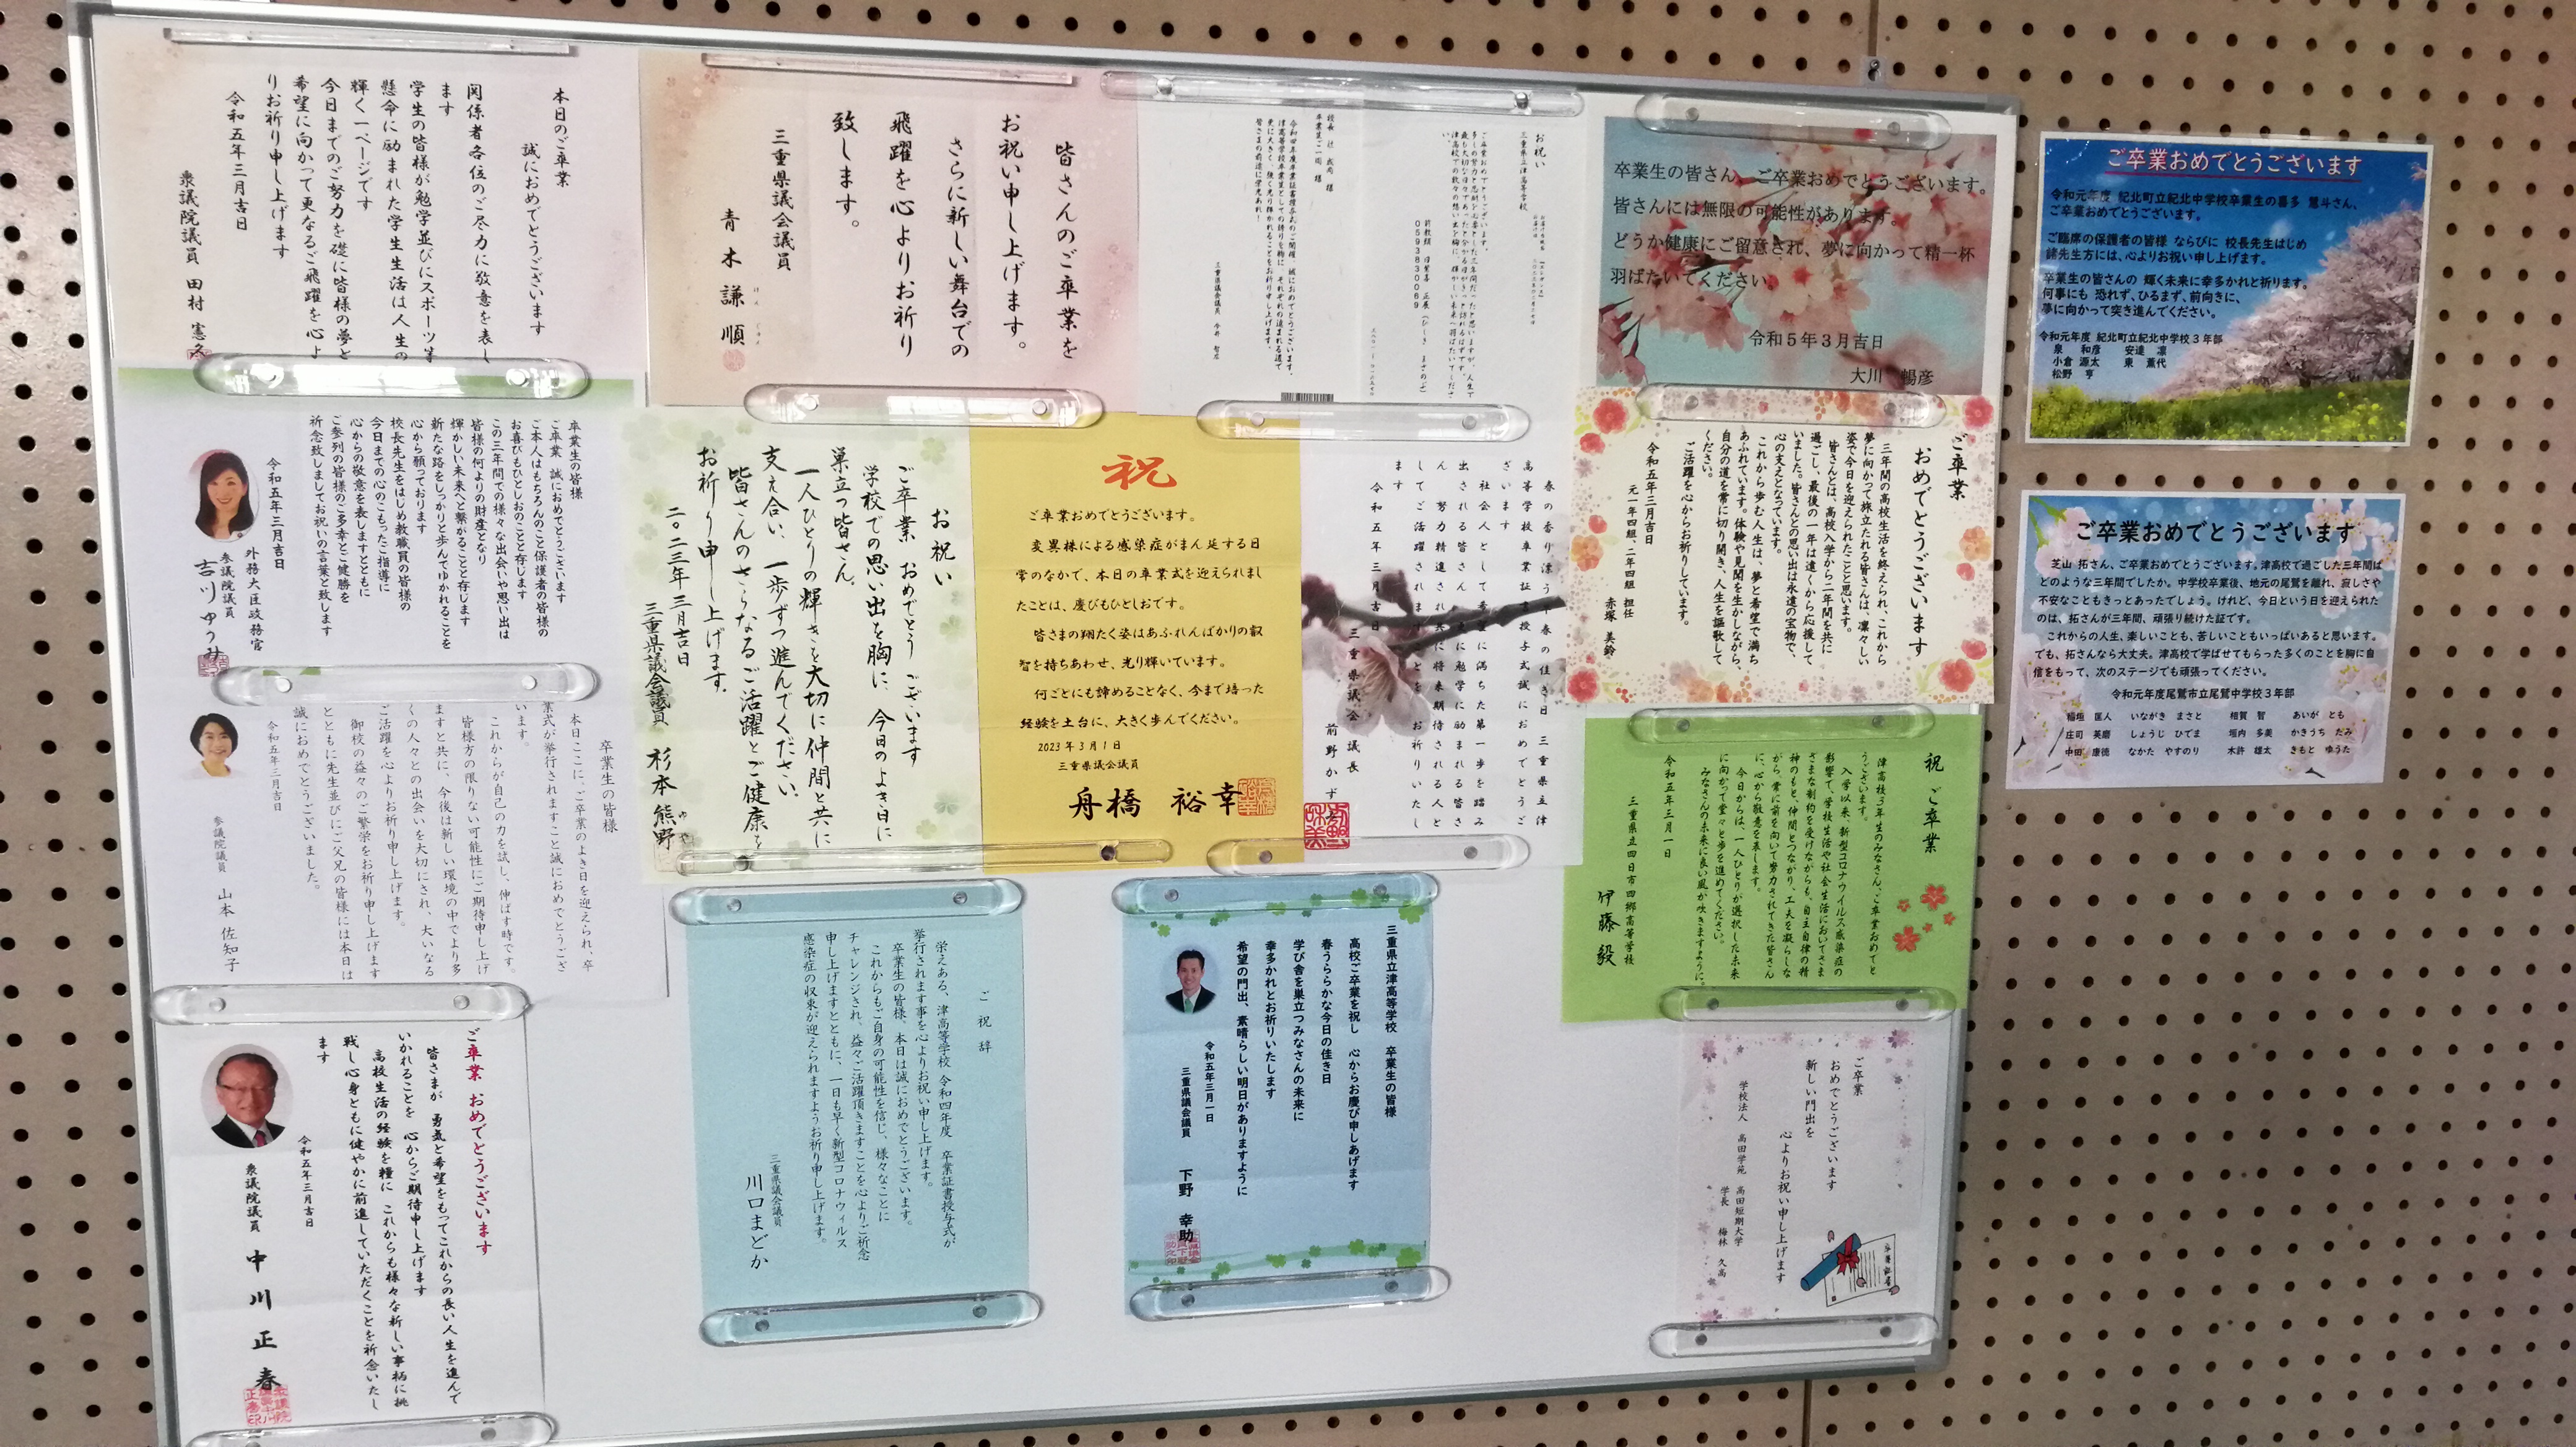 本日のご卒業
誠におめでとうございます
関係者各位のご尽力に敬意を表し
ます
学生の皆様が勉学並びにスポーツ等
懸命に励まれた学生生活は人生の
輝く一ページです
今日までのご努力を礎に皆様の夢と
希望に向かって更なるご飛躍を心よ
りお祈り申し上げます
令和五年三月吉日
衆議院議員 田村 憲久
皆さんのご卒業を
お祝い申し上げます。
さらに新しい舞台での
飛躍を心よりお祈り
致します。
三重県議会議員
青木 謙順
お祝い
三重県立津高等学校
校長
卒業生ご一同 様
ご卒業おめでとうございます。
0593830069
三重県議会議員 今井 智広
卒業生の皆さん、ご卒業おめでとうございます。
皆さんには無限の可能性があります。
どうか健康にご留意され、夢に向かって精一杯
羽ばたいてください。
令和5年3月吉日
大川 暢彦
ご卒業おめでとうございます
令和元年度 紀北町立紀北中学校卒業生の喜多 慧斗さん、
ご卒業おめでとうございます。
ご臨席の保護者の皆様 ならびに 校長先生はじめ
諸先生方には、心よりお祝い申し上げます。
卒業生の皆さんの 輝く未来に幸多かれと祈ります。
何事にも 恐れず、ひるまず、前向きに、
夢に向かって突き進んでください。
令和元年度 紀北町立紀北中学校3年部
泉 和彦 安達 凛
小倉 源太 東 薫代
松野 亨
卒業生の皆様
ご卒業 誠におめでとうございます
ご本人はもちろんのこと保護者の皆様の
お喜びもひとしおのことと存じます
この三年間での様々な出会いや思い出は
皆様の何よりの財産となり
輝かしい未来へと繋がることと存じます
新たな路をしっかりと歩んでゆかれることを
心から願っております
校長先生をはじめ教職員の皆様の
今日までの心のこもったご指導に
心からの敬意を表しますとともに
ご参列の皆様のご多幸とご健勝を
祈念致しましてお祝いの言葉と致します
令和五年三月吉日
外務大臣政務官
参議院議員
吉川 ゆうみ
お祝い
ご卒業 おめでとう ございます
学校での思い出を胸に、今日のよき日に
巣立つ皆さん。
一人ひとりの輝きを大切に仲間と共に
支え合い、一歩ずつ進んでください。
皆さんのさらなるご活躍とご健康を
お祈り申し上げます。
二〇二三年 三月吉日
三重県議会議員 杉本 熊野
祝
ご卒業おめでとうございます。
変異株による感染症がまん延する日
常のなかで、本日の卒業式を迎えられまし
たことは、慶びもひとしおです。
皆さまの翔たく姿はあふれんばかりの叡
智を持ちあわせ、光り輝いています。
何ごとにも諦めることなく、今まで培った
経験を土台に、大きく歩んでください。
2023年3月1日
三重県議会議員
舟橋 裕幸
春の香り漂う早春の佳き日 三重県立津
高等学校卒業証書授与式誠におめでとうご
ざいます
社会人として希望に満ちた第一歩を踏み
出される皆さん 更に勉学に励まれる皆さ
ん 努力精進され共に将来期待される人と
してご活躍されますことをお祈りいたし
ます
令和五年三月吉日
三重県議会 議長
前野かず美
ご卒業
おめでとうございます
三年間の高校生活を終えられ、これから
夢に向かって旅立たれる皆さんは、凛々しい
姿で今日を迎えられたことと思います。
皆さんとは、高校入学から二年間を共に
過ごし、最後の一年は遠くから応援して
いました。皆さんとの思い出は永遠の宝物で、
心の支えとなっています。
これから歩む人生は、夢と希望で満ち
あふれています。体験や見聞を生かしながら、
自分の道を常に切り開き、人生を謳歌して
ください。
ご活躍を心からお祈りしています。
令和五年三月吉日
元一年四組、二年四組 担任
赤塚 美鈴
ご卒業おめでとうございます
芝山 拓さん、ご卒業おめでとうございます。津高校で過ごした三年間は
どのような三年間でしたか。中学校卒業後、地元の尾鷲を離れ、寂しさや
不安なこともきっとあったでしょう。けれど、今日という日を迎えられた
のは、拓さんが三年間、頑張り続けた証です。
これからの人生、楽しいことも、苦しいこともいっぱいあると思います。
でも、拓さんなら大丈夫。津高校で学ばせてもらった多くのことを胸に自
信をもって、次のステージでも頑張ってください。
令和元年度尾鷲市立尾鷲中学校3年部
稲垣 匡人 いながき まさと 相賀 智 あいが とも
庄司 英磨 しょうじ ひでま 垣内 多美 かきうち たみ
中田 康徳 なかた やすのり 木許 雄太 きもと ゆうた
卒業生の皆様
本日ここに、ご卒業のよき日を迎えられ、卒
業式が挙行されますこと誠におめでとうござ
います。
これからが自己の力を試し、伸ばす時です。
皆様方の限りない可能性にご期待申し上げ
ますと共に、今後は新しい環境の中でより多
くの人々との出会いを大切にされ、大いなる
ご活躍を心よりお祈り申し上げます。
御校の益々のご繁栄をお祈り申し上げます
とともに先生並びにご父兄の皆様には本日は
誠におめでとうございました。
令和五年三月吉日
参議院議員 山本 佐知子
祝 ご卒業
津高校3年生のみなさん、ご卒業おめでと
うございます。
入学以来、新型コロナウイルス感染症の
影響で、学校生活や社会生活においてさま
ざまな制約を受けながらも、自主自律の精
神のもと、仲間とつながり、工夫を凝らしな
がら、常に前を向いて努力されてきた皆さん
に、心から敬意を表します。
今日からは、一人ひとりが選択した未来
に向かって堂々と歩を進めてください。
みなさんの未来に良い風が吹きますように。
令和五年三月一日
三重県立四日市四郷高等学校
伊藤 毅
ご卒業 おめでとうございます
皆さまが 勇気と希望をもってこれからの長い人生を進んで
いかれることを 心からご期待申し上げます
高校生活の経験を糧に これからも様々な新しい事柄に挑
戦し心身ともに健やかに前進していただくことを祈念いたし
ます
令和五年三月吉日
衆議院議員 中川 正春
ご祝辞
栄えある、津高等学校 令和四年度 卒業証書授与式が
挙行されます事を心よりお祝い申し上げます。
卒業生の皆様、本日は誠におめでとうございます。
これからもご自身の可能性を信じ、様々なことに
チャレンジされ、益々ご活躍頂きますことを心よりご祈念
申し上げますとともに、一日も早く新型コロナウィルス
感染症の収束が迎えられますようお祈り申し上げます。
三重県議会議員
川口 まどか
三重県立津高等学校 卒業生の皆様
高校ご卒業を祝し 心からお慶び申しあげます
春うららかな今日の佳き日
学び舎を巣立つみなさんの未来に
幸多かれとお祈りいたします
希望の門出、素晴らしい明日がありますように
令和五年三月一日
三重県議会議員 下野 幸助
ご卒業
おめでとうございます
新しい門出を
心よりお祝い申し上げます
学校法人 高田学苑 高田短期大学
学長 梅林 久高
卒業証書